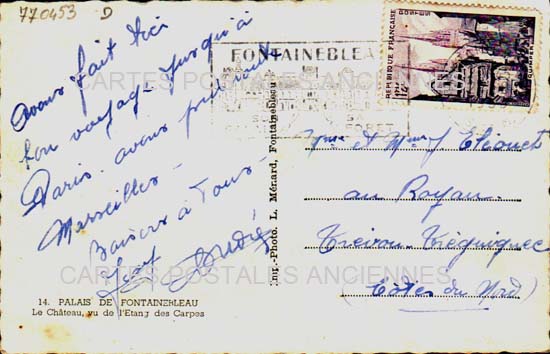 770453 D
avons fait très
bon voyage jusqu'à
Paris. avons pris route
Marseilles -
Baisers à Tous -
André
14. PALAIS DE FONTAINEBLEAU
Le Château, vu de l'Etang des Carpes
Imp.-Photo. L. Ménard, Fontainebleau
FONTAINEBLEA
FORET
REPUBLIQUE FRANÇAISE
et
au Royau
Trévou-Tréguignec
(Côtes du Nord)
CARTES POSTALES ANCIENNES
CARTES POSTALES ANCIENNES